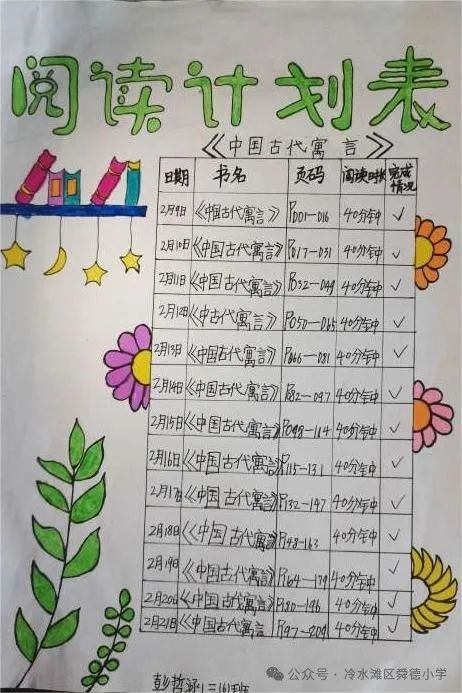 阅读计划表
《中国古代寓言》
日期 书名 页码 阅读时长 完成情况
2月9日 《中国古代寓言》 P001-016 40分钟 ✓
2月10日 《中国古代寓言》 P017-031 40分钟 ✓
2月11日 《中国古代寓言》 P032-049 40分钟 ✓
2月12日 《中古代寓言》 P050-065 40分钟 ✓
2月13日 《中国古代寓言》 P066-081 40分钟 ✓
2月14日 《中国古代寓言》 P082-097 40分钟 ✓
2月15日 《中国古代寓言》 P098-114 40分钟 ✓
2月16日 《中国古代寓言》 P115-131 40分钟 ✓
2月17日 《中国古代寓言》 P132-147 40分钟 ✓
2月18日 《中国古代寓言》 P148-163 40分钟 ✓
2月19日 《中国古代寓言》 P164-179 40分钟 ✓
2月20日 《中国古代寓言》 P180-196 40分钟 ✓
2月21日 《中国古代寓言 P197-209 40分钟 ✓
彭哲涵
公众号·冷水滩区舜德小学